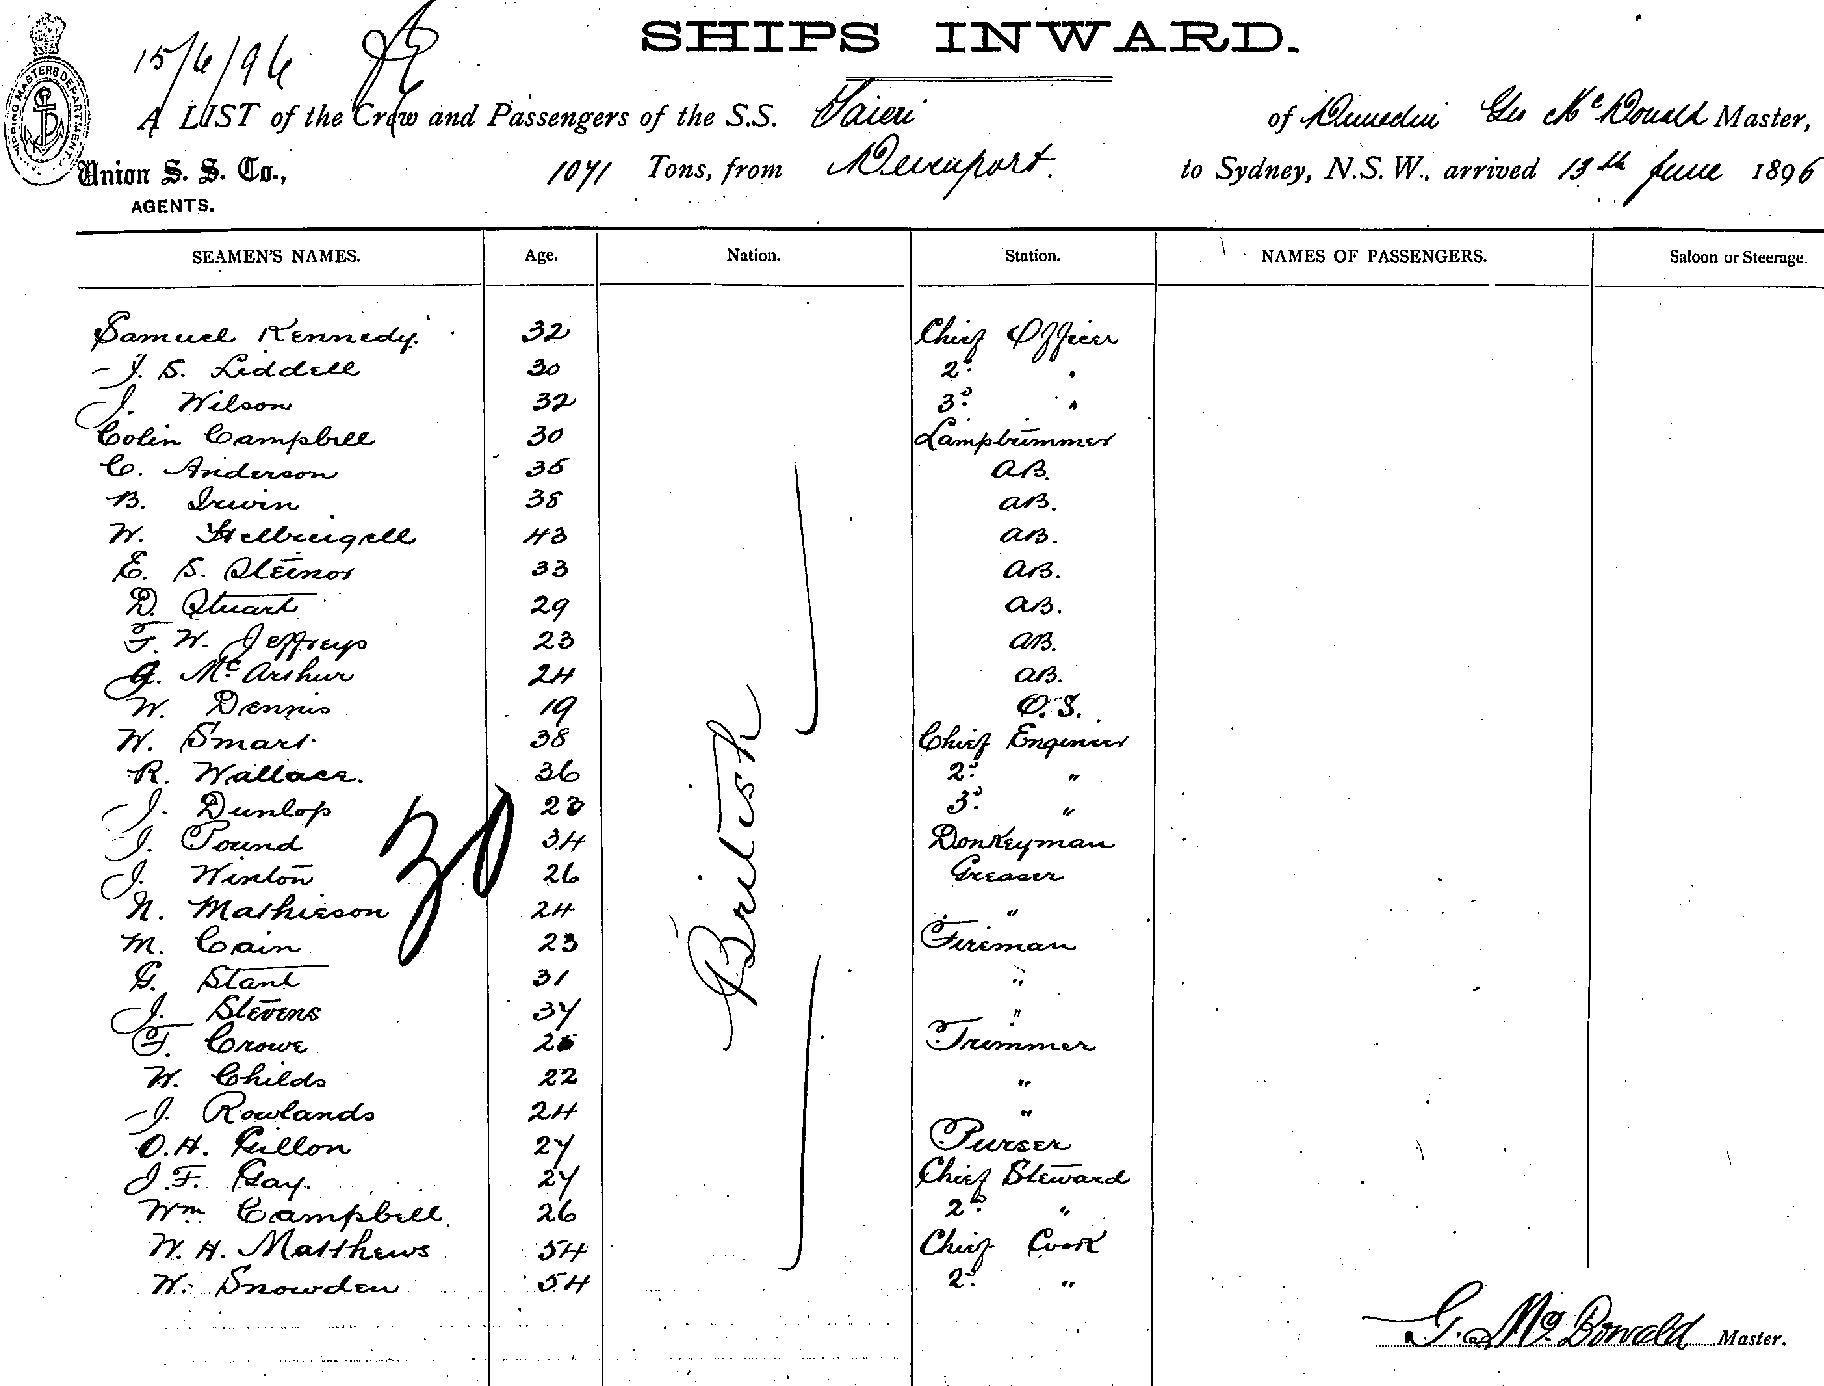 SHIPS INWARD.
15/6/96
SHIPPING MASTERS DEPARTMENT
A LIST of the Crew and Passengers of the S.S. Taieri of Dunedin Geo McDonald Master,
Union S. S. Co., 1071 Tons, from Devenport. to Sydney, N.S.W., arrived 13th June 1896
AGENTS.
SEAMEN'S NAMES. Age. Nation. Station. NAMES OF PASSENGERS. Saloon or Steerage.
Samuel Kennedy. 32 Chief Officer
J. S. Liddell 30 2d "
J. Wilson 32 3d "
Colin Campbell 30 Lamptrimmer
C. Anderson 35 AB.
B. Irwin 38 AB.
W. 43 AB.
E. S. Steinor 33 AB.
D. Stuart 29 AB.
F. W. Jeffreys 23 AB.
G. McArthur 24 AB.
W. Dennis 19 O.S.
W. Smart 38 Chief Engineer
R. Wallace. 36 2d "
J. Dunlop 23 3d "
J. Pound 34 Donkeyman
J. Winton 26 Greaser
N. Mathieson 24 "
M. Cain 23 Fireman
G. Stant 31 "
J. Stevens 37 "
F. Crowe Trimmer
W. Childs 22 "
J. Rowlands 24 "
O.H. Gillon 27 Purser
J.F. Gay. 27 Chief Steward
Wm Campbell. 26 2d "
W. H. Matthews 54 Chief Cook
W. Snowden 54 2d "
British
30
G. McDonald Master.